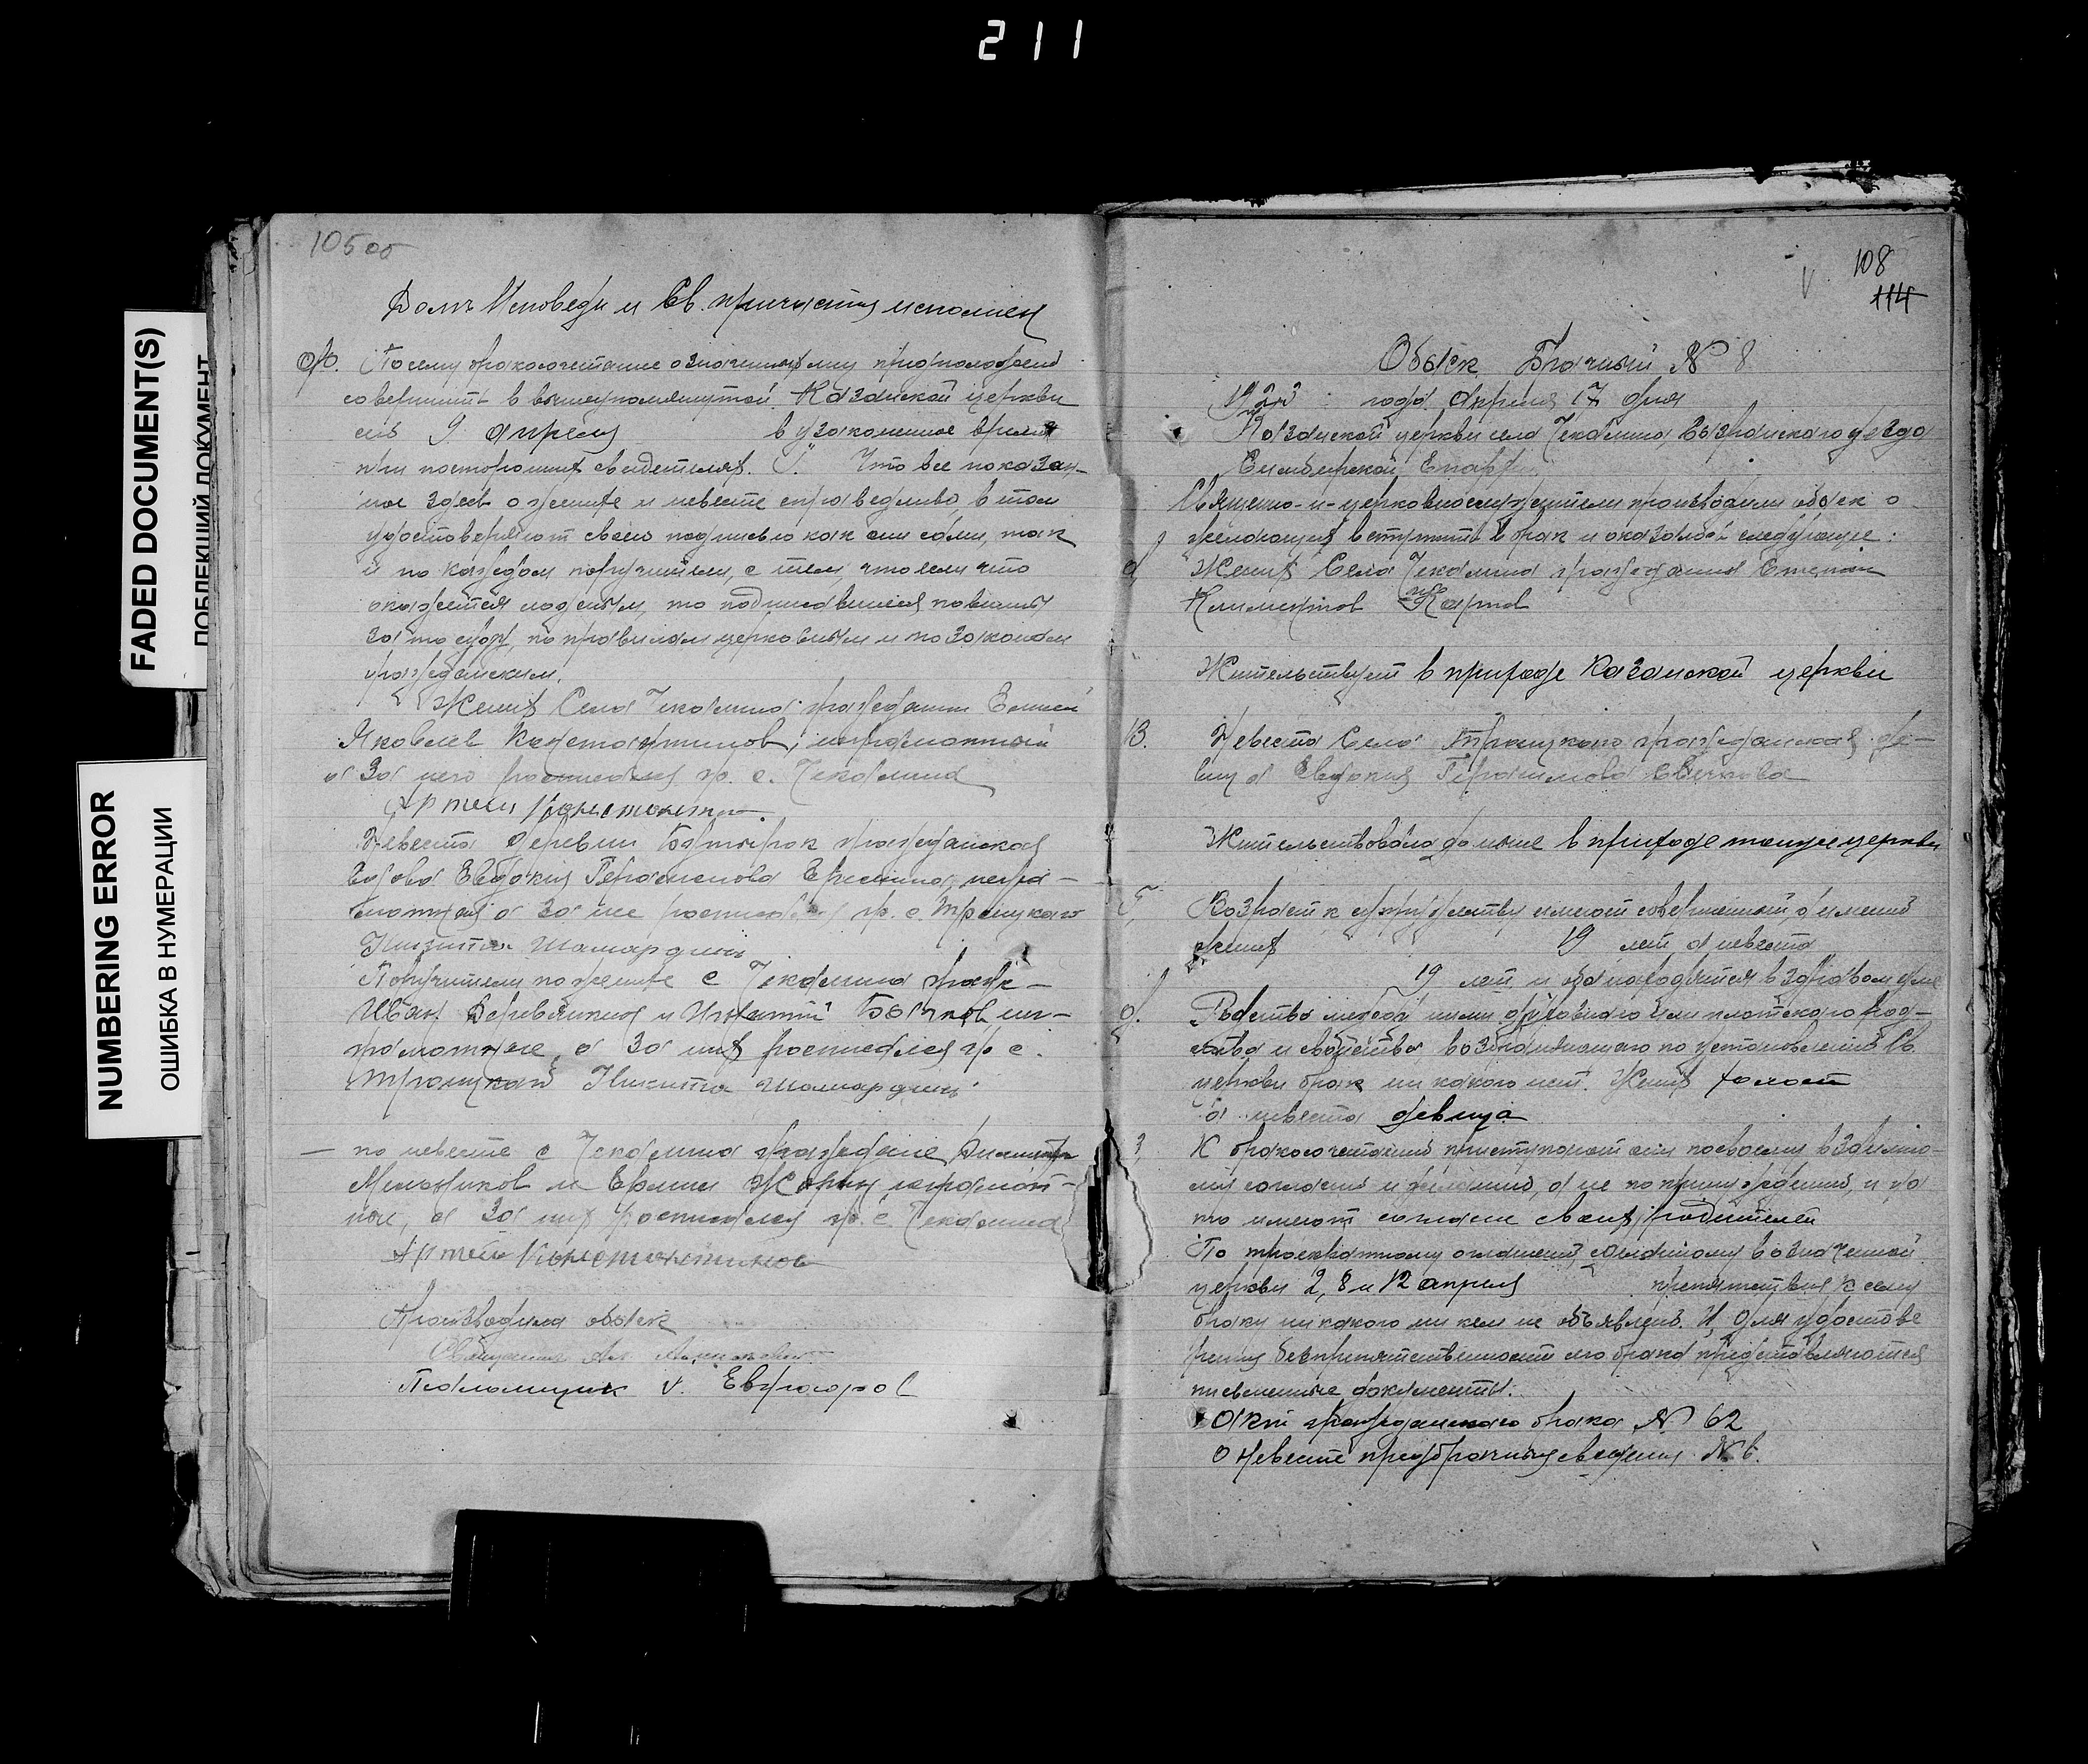 211
FADED DOCUMENT(S)
ПОБЛЕКШИЙ ДОКУМЕНТ
NUMBERING ERROR
ОШИБКА В НУМЕРАЦИИ
105 об
Долг Исповеди и Св. причастия исполнен
Посему бракосочетание означенных лиц предположено
совершить в вышеупомянутой Казанской церкви
сего 9 апреля в узаконенное время
при посторонних свидетелях. Что все показан-
ное здесь о женихе и невесте справедливо, в том
удостоверяют своею подписью как они сами, так
и по каждом поручители, с тем, что если что
окажется ложным, то подписавшиеся повинны
за то суду, по правилам церковным и по законам
гражданским.
Жених Села Чекалина гражданин
Яковлев Константинов, неграмотный
а за него росписался гр. с. Чекалина
Артем Константинов
Невеста деревни гражданская
вдова Евдокия Герасимова неgра-
мотная а за нее росписался гр. с. Троицкого
Никита Шамардин
Поручители по женихе с Чекалина граж-
Иван и Игнатий не-
грамотные, а за них росписался гр с.
Троицкой Никита Шамардин
— по невесте с Чекалина граждане
Мельников и неграмот-
ные, а за них росписался гр. с. Чекалина
Артем Константинов
Производили обыск
Священник
Псаломщик Евграфов
108
114
Обыск Брачный № 8
года Апреля 17 дня
Казанской церкви села Чекалина Сызранского уезда
Симбирской Епархии
Священно-и-церковнослужители производили обыск о
желающих вступить в брак и оказалось следующее:
Жених Села Чекалина гражданин Степан
Климентов Карпов
Жительствует в приходе Казанской церкви
В. Невеста Села Троицкого гражданская де-
вица Евдокия Герасимова
Жительствовала доныне в приходе тоиже церкви
Возраст к супружеству имеют совершенный, а именно
жених 19 лет, а невеста
19 лет и оба находятся в здравом уме
Родства между ними духовного или плотского род-
ства и свойства возбраняющаго по установлению Св.
церкви брак никакого нет. Жених холост
а невеста девица
К бракосочетанию приступают они по своему взаимно-
му согласию и желанию, а не по принуждению, и на
то имеют согласие своих родителей
По троекратному оглашению, сделанному в означенной
церкви 2, 8 и 12 апреля препятствия к сему
браку никакого ни кем не объявлено. И, для удостове
рения безпрепятственности его брака представляются
письменные документы.
Акт гражданского брака № 62
О невесте предбрачныя сведения № 6.